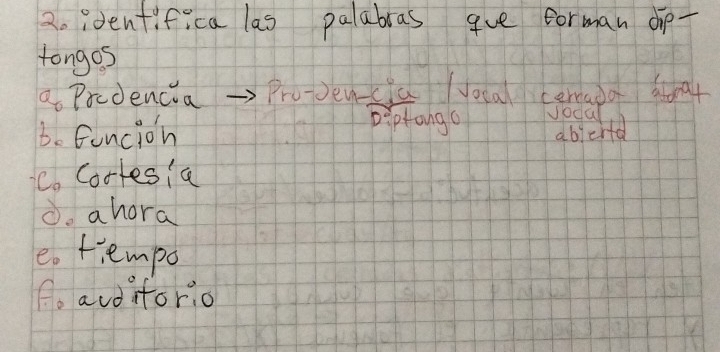 2. identifica las palabras que forman dip-
tongos
a. Prudencia → Pru-den-cia / vocal cerrada átona +
Diptongo vocal
abierta
b. función
c. Cortesía
d. ahora
e. tiempo
f. auditorio